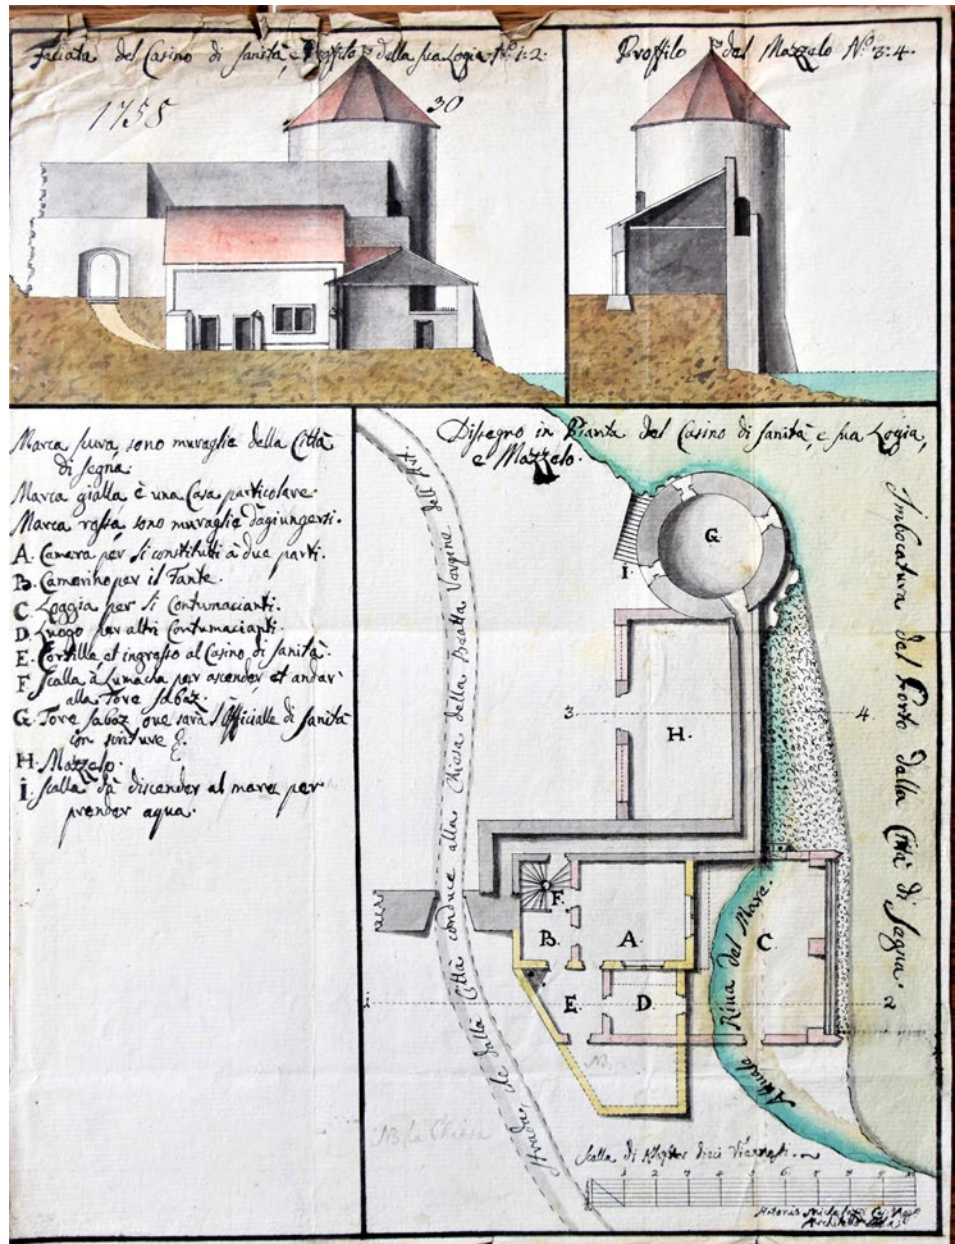 Faciata del Casino di Sanità, e Proffilo della sua Logia N.º 1:2:
1758
30
Proffilo del Mazzelo N.º 3:4.
Marca scura, sono muraglie della Città
di Segna.
Marca gialla è una Casa particolare.
Marca rossa, sono muraglie d'agiungersi.
A. Camera per li constituti à due parti.
B. Camerino per il Fante.
C Loggia per li Contumacianti.
D Luogo per altri Contumacianti.
E. Cortille et ingresso al Casino di Sanità.
F Scalla à Lumacha per ascender, et andar
alla Tore Sabaz.
G. Tore Sabaz, ove sarà l'Officialle di Sanità
con scriture &.
H. Mazzelo.
I. Scalla dà discender al mare per
prender aqua.
Disegno in Pianta del Casino di Sanità, e sua Logia,
e Mazzelo.
Strada, che dalla Città conduce alla Chiesa della Beatta Vergine dell'Art.
Imbocatura del Porto dalla Città di Segna.
G.
I.
3
4
H.
F.
B.
A.
C
E
D
1
2
Attuale Riva del Mare.
NB.
NB. la Chiesa
Scalla di Klafter dieci Viennesi.
1 2 3 4 5 6 7 8 9 10
Architetto